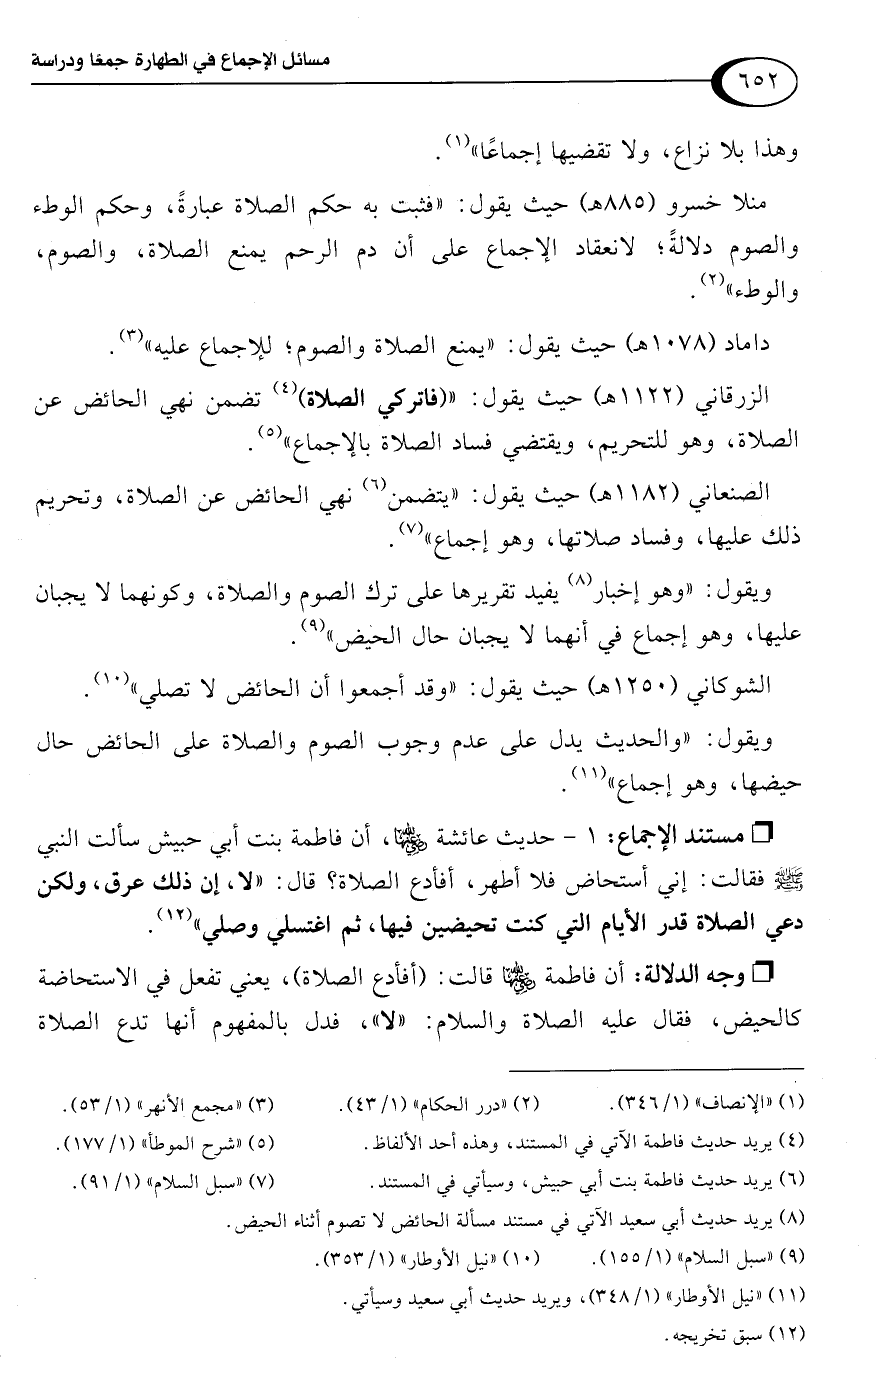 مسائل الإجماع في الطهارة جمعًا ودراسة
٦٥٢
وهذا بلا نزاع، ولا تقضيها إجماعًا»(١).
منلا خسرو (٨٨٥هـ) حيث يقول: «فثبت به حكم الصلاة عبارةً، وحكم الوطء
والصوم دلالةً؛ لانعقاد الإجماع على أن دم الرحم يمنع الصلاة، والصوم،
والوطء»(٢).
داماد (١٠٧٨هـ) حيث يقول: «يمنع الصلاة والصوم؛ للإجماع عليه»(٣).
الزرقاني (١١٢٢هـ) حيث يقول: «(فاتركي الصلاة)(٤) تضمن نهي الحائض عن
الصلاة، وهو للتحريم، ويقتضي فساد الصلاة بالإجماع»(٥).
الصنعاني (١١٨٢هـ) حيث يقول: «يتضمن(٦) نهي الحائض عن الصلاة، وتحريم
ذلك عليها، وفساد صلاتها، وهو إجماع»(٧).
ويقول: «وهو إخبار(٨) يفيد تقريرها على ترك الصوم والصلاة، وكونهما لا يجبان
عليها، وهو إجماع في أنهما لا يجبان حال الحيض»(٩).
الشوكاني (١٢٥٠هـ) حيث يقول: «وقد أجمعوا أن الحائض لا تصلي»(١٠).
ويقول: «والحديث يدل على عدم وجوب الصوم والصلاة على الحائض حال
حيضها، وهو إجماع»(١١).
❑ مستند الإجماع: ١ - حديث عائشة رضي الله عنها، أن فاطمة بنت أبي حبيش سألت النبي
ﷺ فقالت: إني أستحاض فلا أطهر، أفأدع الصلاة؟ قال: «لا، إن ذلك عرق، ولكن
دعي الصلاة قدر الأيام التي كنت تحيضين فيها، ثم اغتسلي وصلي»(١٢).
❑ وجه الدلالة: أن فاطمة رضي الله عنها قالت: (أفأدع الصلاة)، يعني تفعل في الاستحاضة
كالحيض، فقال عليه الصلاة والسلام: «لا»، فدل بالمفهوم أنها تدع الصلاة
(١) «الإنصاف» (١/ ٣٤٦). (٢) «درر الحكام» (١/ ٤٣). (٣) «مجمع الأنهر» (١/ ٥٣).
(٤) يريد حديث فاطمة الآتي في المستند، وهذه أحد الألفاظ. (٥) «شرح الموطأ» (١/ ١٧٧).
(٦) يريد حديث فاطمة بنت أبي حبيش، وسيأتي في المستند. (٧) «سبل السلام» (١/ ٩١).
(٨) يريد حديث أبي سعيد الآتي في مستند مسألة الحائض لا تصوم أثناء الحيض.
(٩) «سبل السلام» (١/ ١٥٥). (١٠) «نيل الأوطار» (١/ ٣٥٣).
(١١) «نيل الأوطار» (١/ ٣٤٨)، ويريد حديث أبي سعيد وسيأتي.
(١٢) سبق تخريجه.